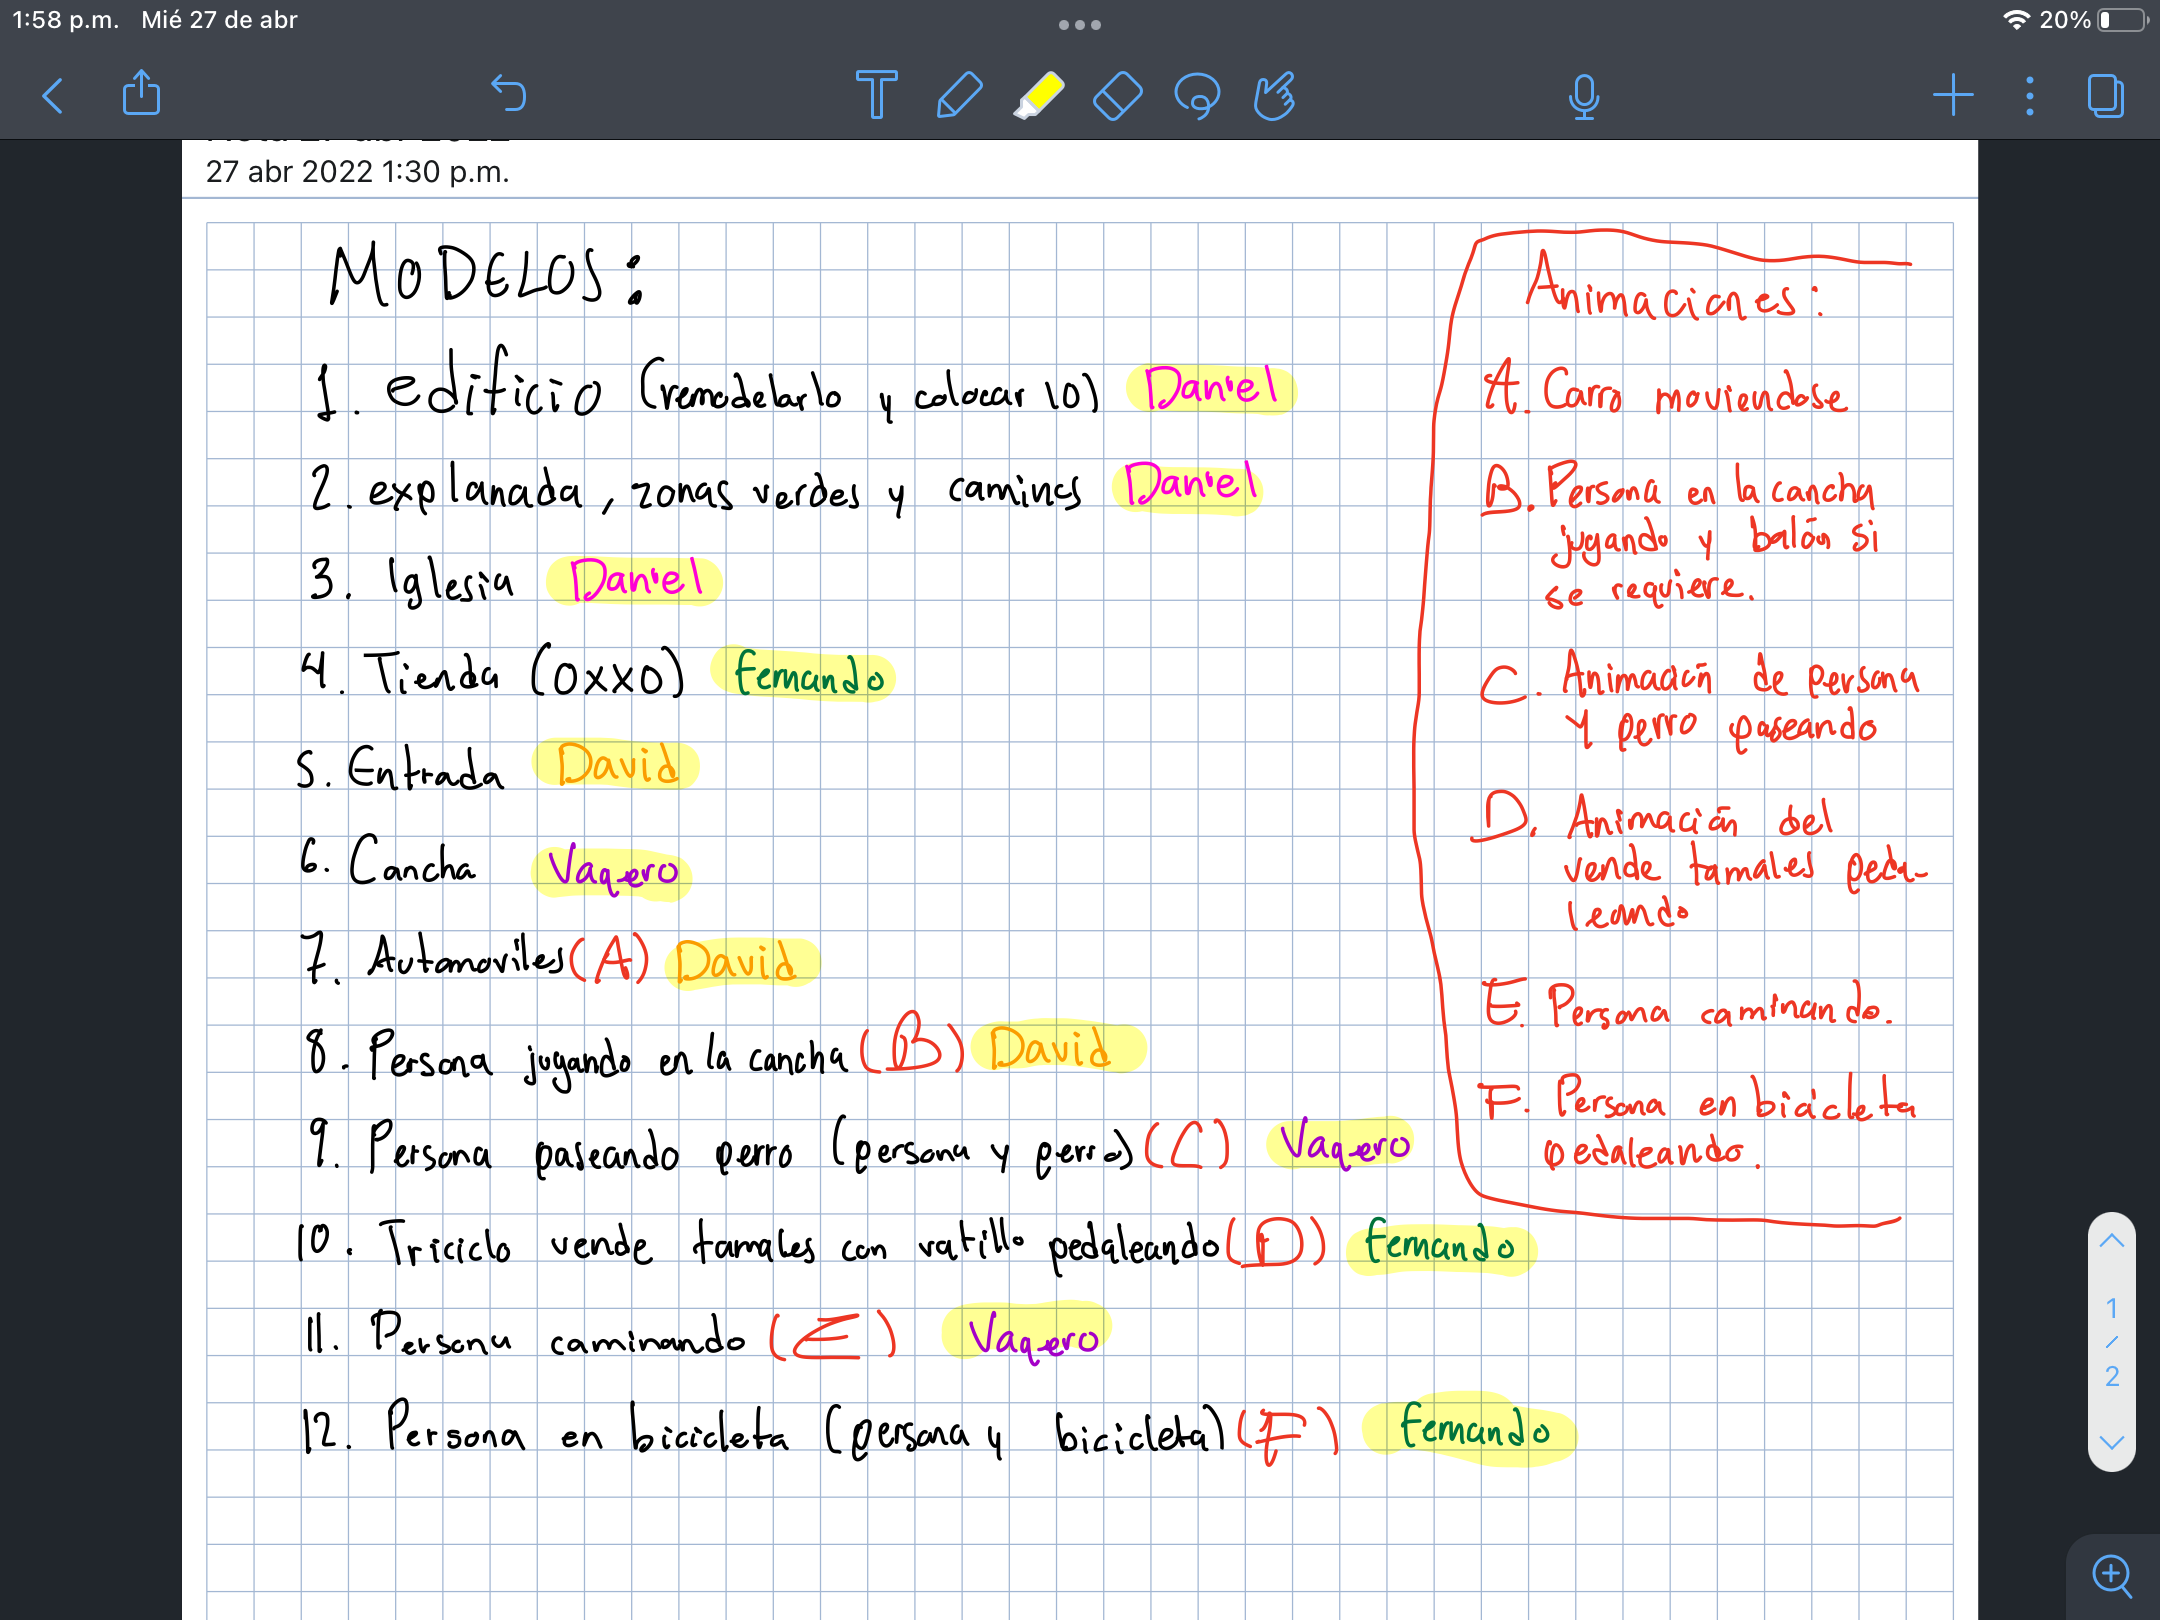 1:58 p.m. Mié 27 de abr
20%
27 abr 2022 1:30 p.m.
MODELOS:
1. edificio (remodelarlo y colocar 10) Daniel
2. explanada, zonas verdes y caminos Daniel
3. Iglesia Daniel
4. Tienda (OXXO) Fernando
5. Entrada David
6. Cancha Vaquero
7. Automoviles (A) David
8. Persona jugando en la cancha (B) David
9. Persona paseando perro (persona y perro) (C) Vaquero
10. Triciclo vende tamales con vatillo pedaleando (D) Fernando
11. Persona caminando (E) Vaquero
12. Persona en bicicleta (persona y bicicleta) (F) Fernando
Animaciones:
A. Carro moviendose
B. Persona en la cancha
jugando y balón si
se requiere.
C. Animación de persona
y perro paseando
D. Animación del
vende tamales peda-
leando
E. Persona caminando.
F. Persona en bicicleta
pedaleando.
1
/
2